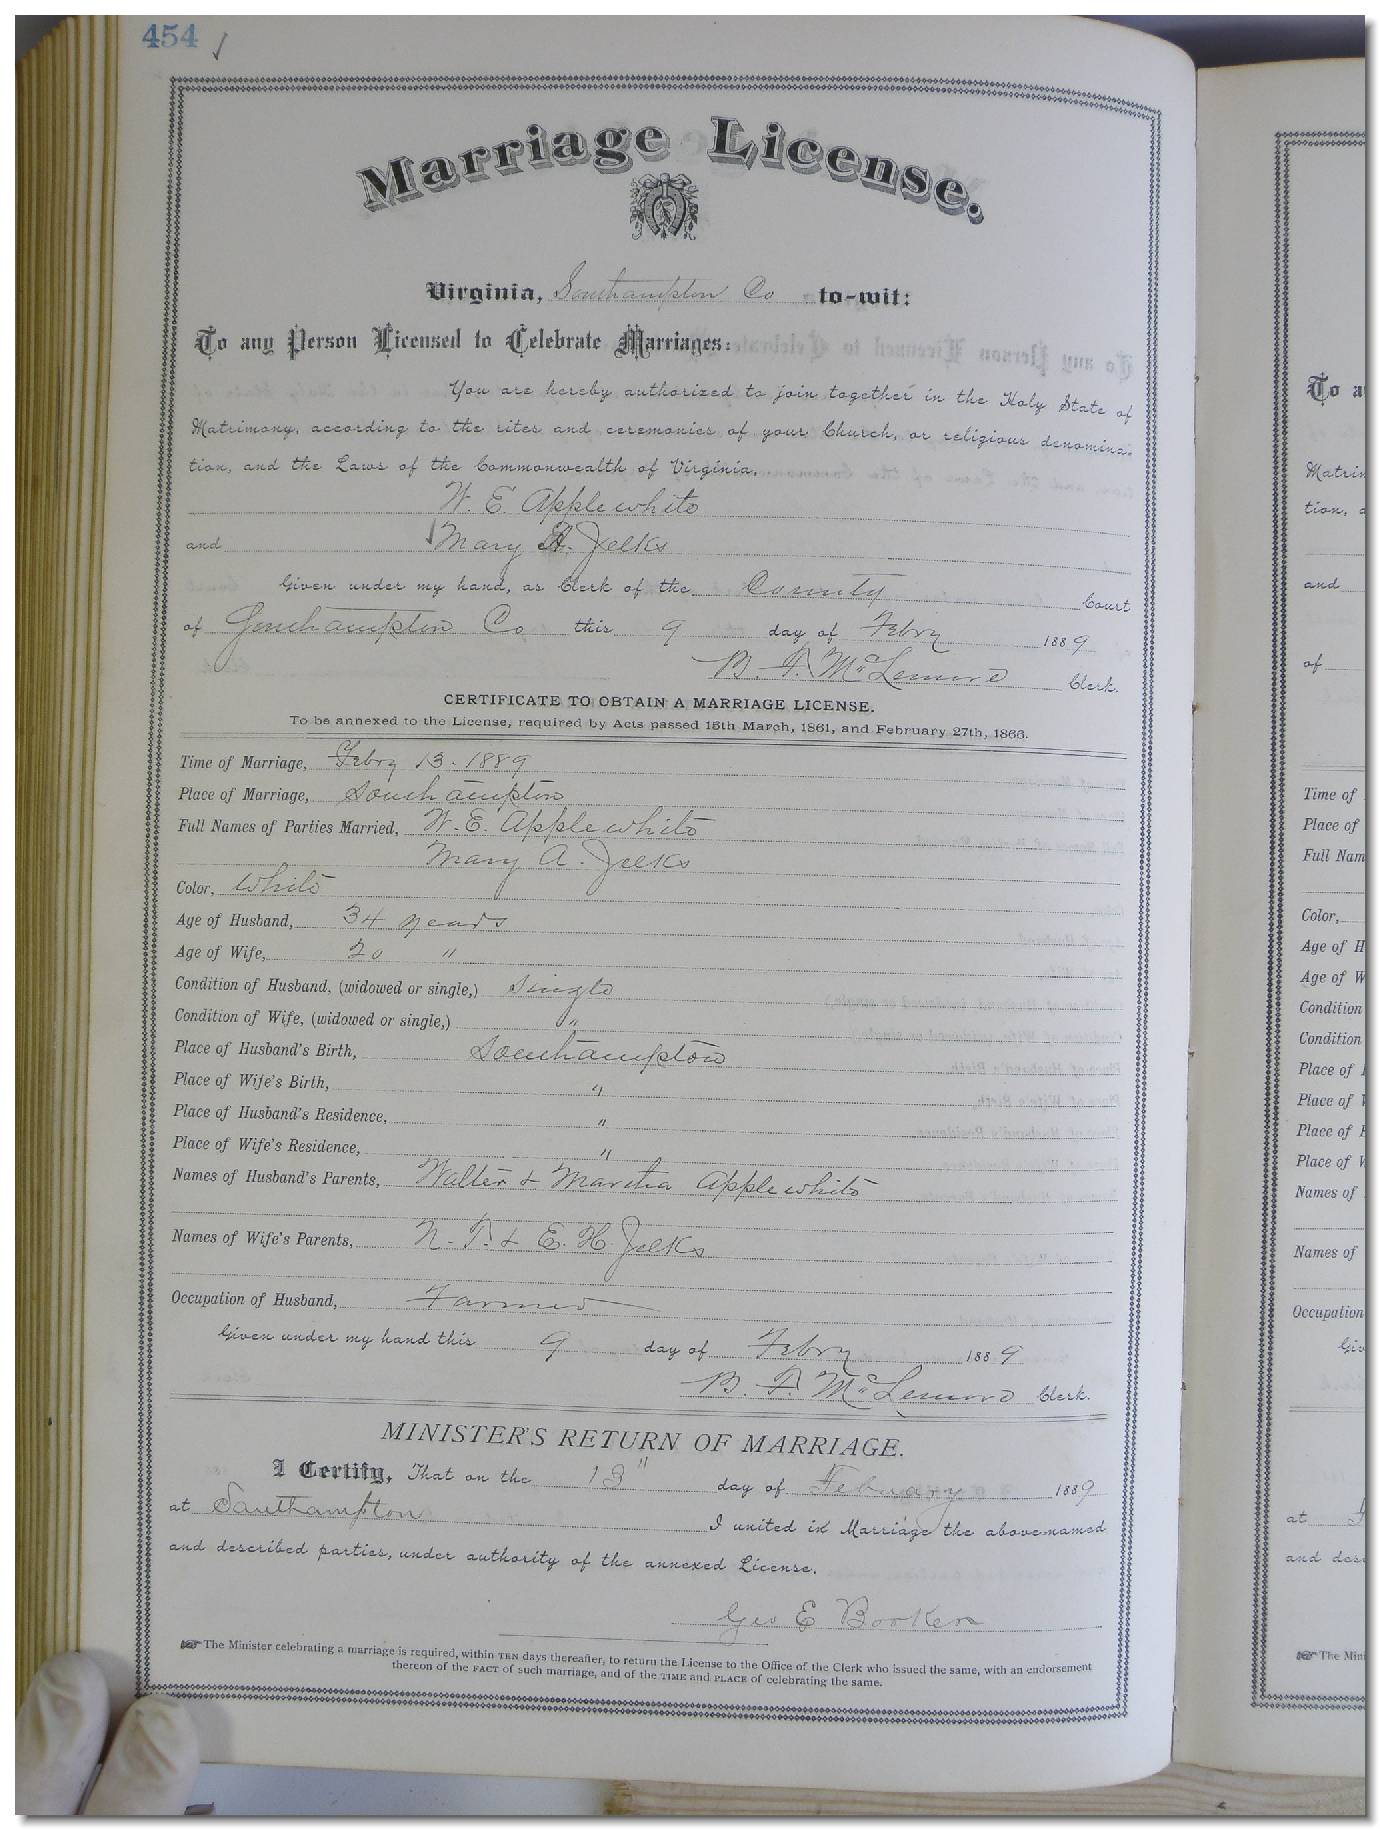 454 ✓
Marriage License.
Virginia, Southampton Co to-wit:
To any Person Licensed to Celebrate Marriages:
You are hereby authorized to join together in the Holy State of
Matrimony, according to the rites and ceremonies of your Church, or religious denomina-
tion, and the Laws of the Commonwealth of Virginia.
W. E. Applewhite
and Mary A. Jelks
Given under my hand, as Clerk of the County Court
of Southampton Co this 9 day of Febry 1889
B. F. McLemore Clerk.
CERTIFICATE TO OBTAIN A MARRIAGE LICENSE.
To be annexed to the License, required by Acts passed 15th March, 1861, and February 27th, 1866.
Time of Marriage, Febry 13. 1889
Place of Marriage, Southampton
Full Names of Parties Married, W. E. Applewhite
Mary A. Jelks
Color, White
Age of Husband, 34 years
Age of Wife, 20 "
Condition of Husband, (widowed or single,) Single
Condition of Wife, (widowed or single,) "
Place of Husband's Birth, Southampton
Place of Wife's Birth, "
Place of Husband's Residence, "
Place of Wife's Residence, "
Names of Husband's Parents, Walter & Martha Applewhite
Names of Wife's Parents, N. T. & E. H. Jelks
Occupation of Husband, Farmer
Given under my hand this 9 day of Febry 1889
B. F. McLemore Clerk.
MINISTER'S RETURN OF MARRIAGE.
I Certify, That on the 13" day of February 1889
at Southampton I united in Marriage the above-named
and described parties, under authority of the annexed License.
Geo E Booker
The Minister celebrating a marriage is required, within TEN days thereafter, to return the License to the Office of the Clerk who issued the same, with an endorsement
thereon of the FACT of such marriage, and of the TIME and PLACE of celebrating the same.
To a
Matrim
tion,
and
of
Time of
Place of
Full Nam
Color,
Age of H
Age of W
Condition
Condition
Place of
Place of
Place of
Place of
Names of
Names of
Occupation
Giv
at
and des
The Min